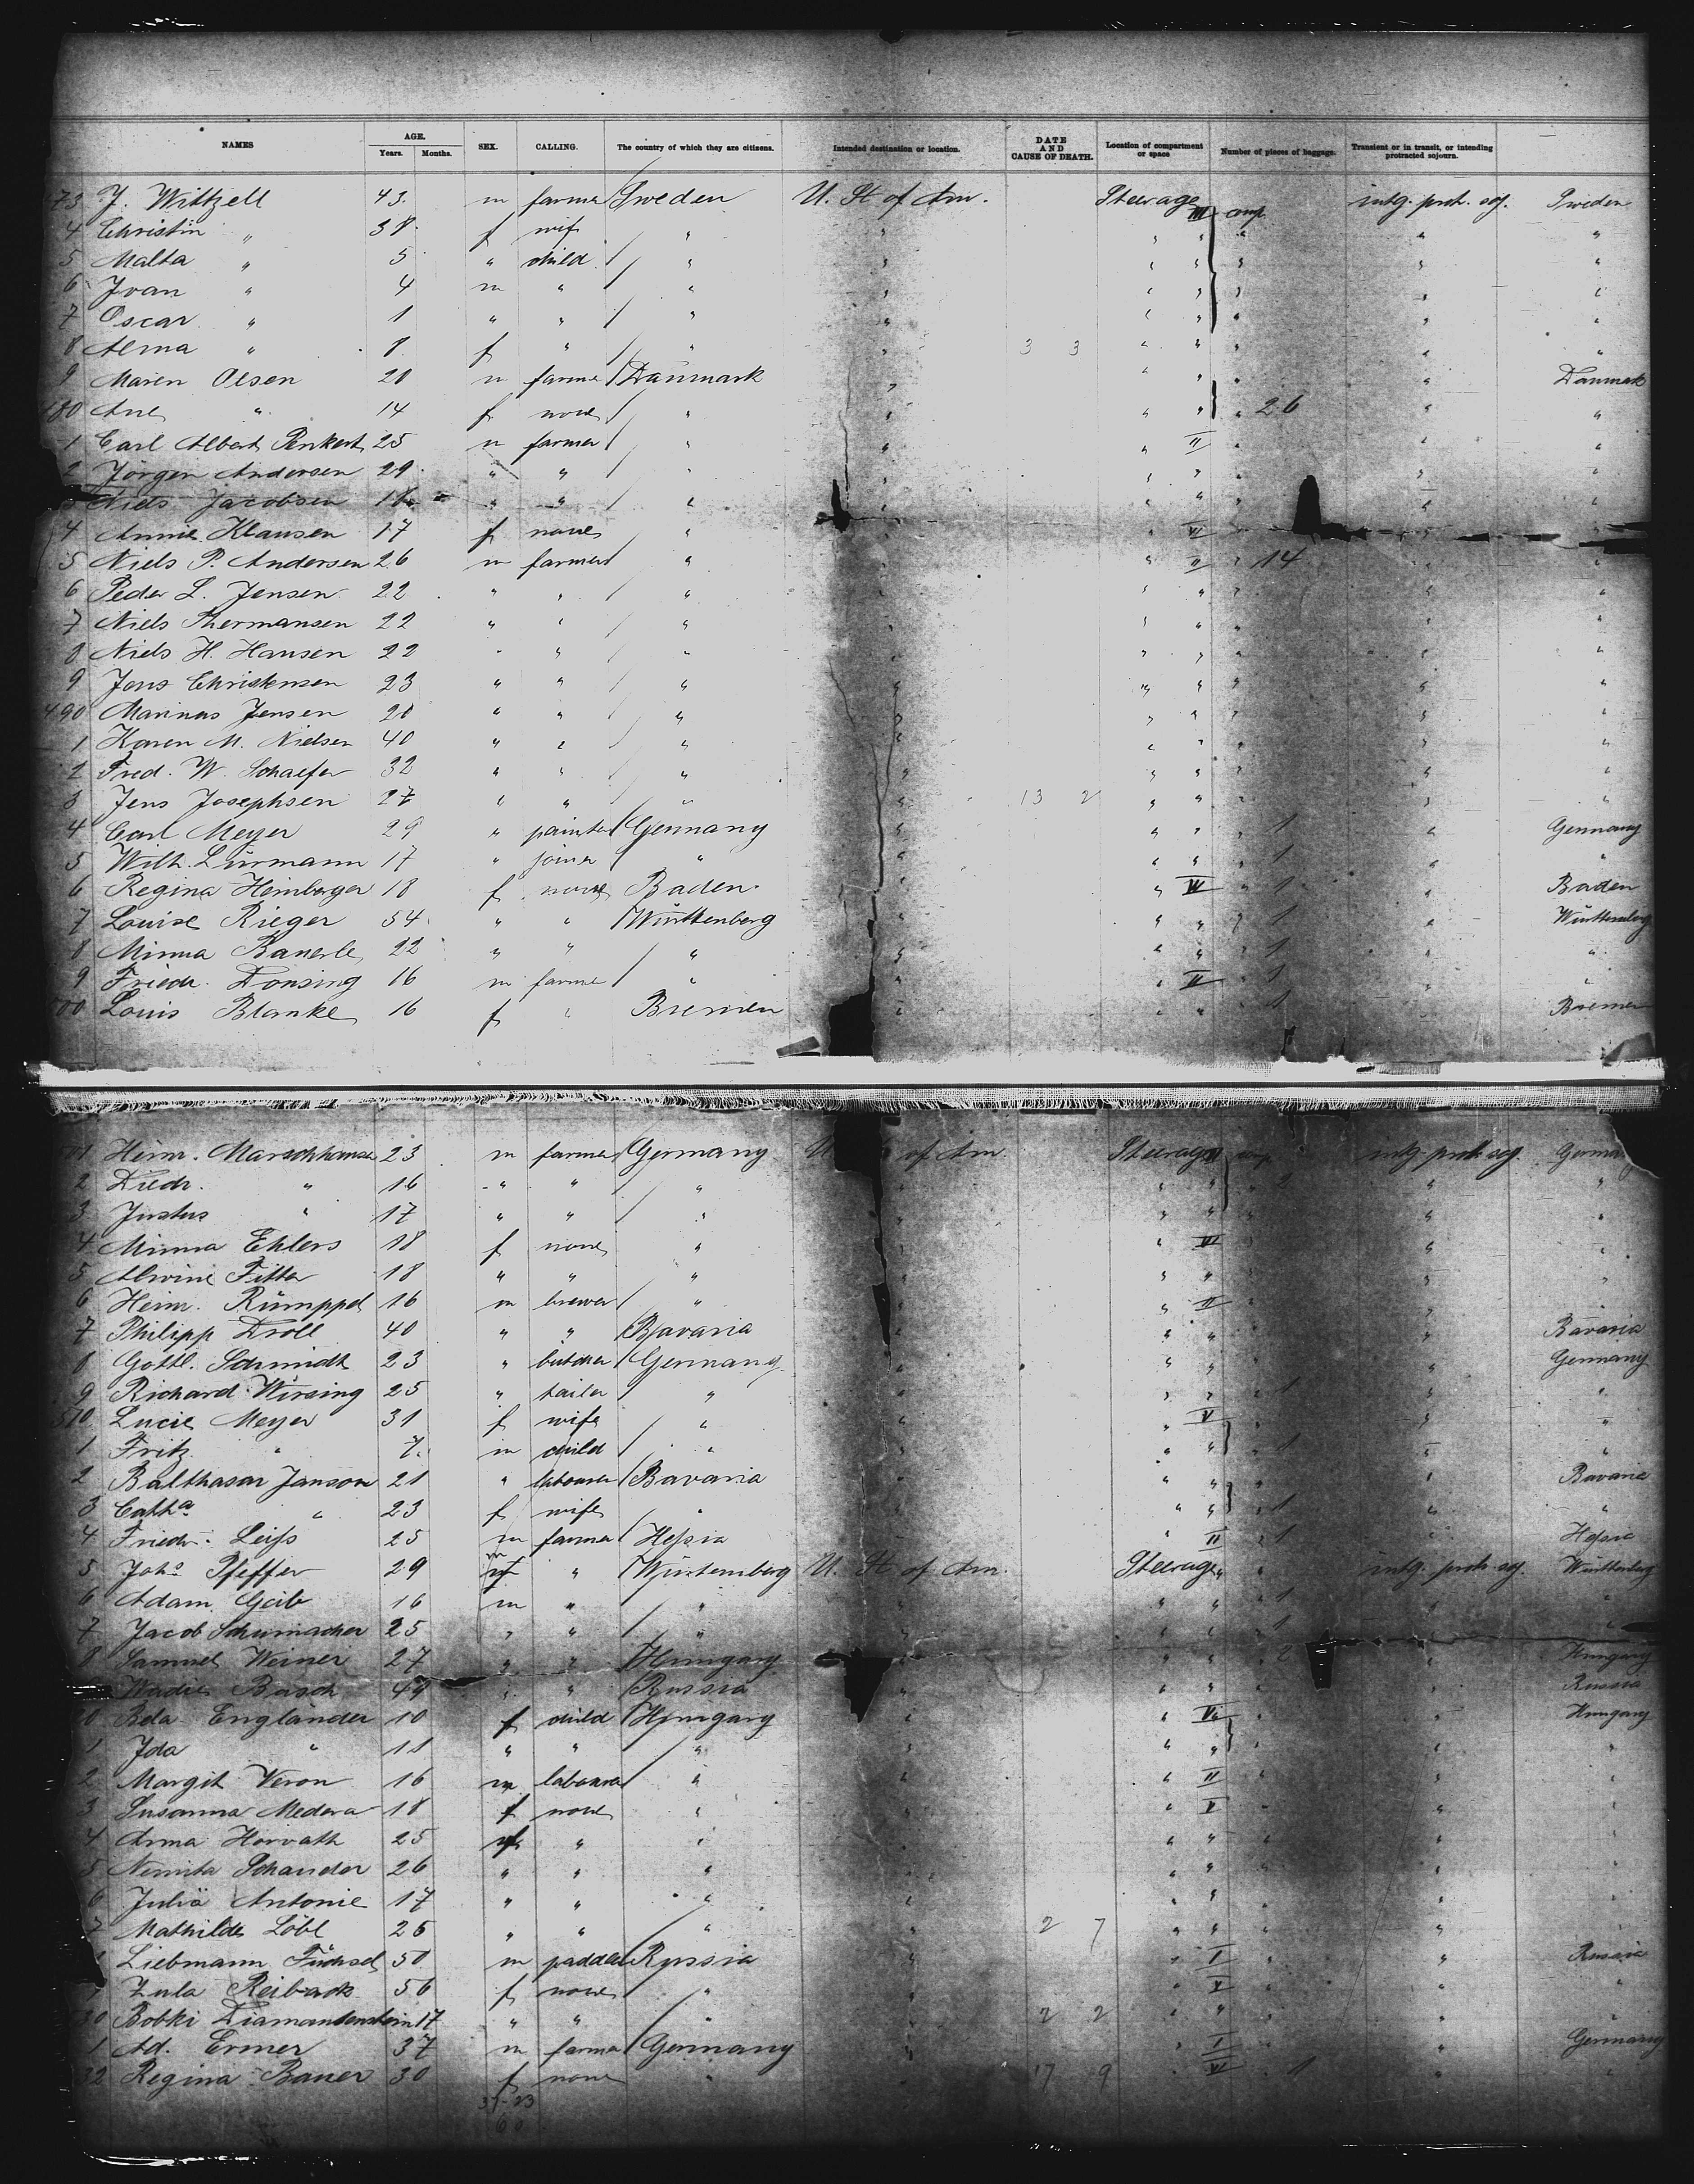 NAMES AGE. Years. Months. SEX. CALLING. The country of which they are citizens. Intended destination or location. DATE AND CAUSE OF DEATH. Location of compartment or space Number of pieces of baggage. Transient or in transit, or intending protracted sojourn.
73 J. Wittzell 43 m farmer Sweden U. St of Am. Steerage III amp. intg. prot. soj. Sweden
4 Christin " 38 f wife " " " " " " "
5 Malta " 5 " child " " " " " " "
6 Ivan " 4 m " " " " " " " "
7 Oscar " 1 " " " " " " " " "
8 Alma " 8 f " " " 3 3 " " " " "
9 Maren Olsen 20 m farmer Danmark " " " " " Danmark
480 Ane " 14 f none " " " " " 26 " "
1 Carl Albert Penkert 25 m farmer " " " II " "
2 Jörgen Andersen 29 " " " " " " " "
3 Niels Jacobsen 18 " " " " " " " "
4 Annie Klausen 17 f none " " VI " "
5 Niels P. Andersen 26 m farmer " " II " 14 " "
6 Peder L. Jensen 22 " " " " " " " " "
7 Niels Thermansen 22 " " " " " " " " "
8 Niels H. Hansen 22 " " " " " " " " "
9 Jens Christensen 23 " " " " " " " " "
490 Marinus Jensen 20 " " " " " " " " "
1 Karen M. Nielsen 40 " " " " " " " " "
2 Fred. W. Schaefer 32 " " " " " " " " "
3 Jens Josephsen 27 " " " " 13 2 " " " " "
4 Carl Meyer 29 " painter Germany " " " " 1 " Germany
5 Wilh. Lürmann 17 " joiner " " " " " 1 " "
6 Regina Heimberger 18 f none Baden " " VI " 1 " Baden
7 Louise Rieger 54 " " Württenberg " " " " 1 " Württemberg
8 Minna Bauerle 22 " " " " " " " 1 " "
9 Friedr. Donsing 16 m farmer " " " II " 1 " "
500 Louis Blanke 16 f " Bremen " " " " 1 " Bremen
501 Heinr. Marschhausen 23 m farmer Germany U of Am. Steerage amp. intg. prot. soj. Germany
2 Diedr. " 16 " " " " " " " 2 " "
3 Justus " 17 " " " " " " " " "
4 Minna Ehlers 18 f none " " VI " "
5 Alwine Fitter 18 " " " " " " "
6 Heinr. Rümppel 16 m brewer " " II "
7 Philipp Droll 40 " " Bavaria " " " " Bavaria
8 Gottl. Schmidt 23 " butcher Germany " " " " Germany
9 Richard Wirsing 25 " tailor " " " " 1 " "
510 Lucie Meyer 31 f wife " " " V " "
1 Fritz " 7 m child " " " " 1 " "
2 Balthasar Janson 21 " labourer Bavaria " " " " Bavaria
3 Catha. " 23 f wife " " " " 1 " "
4 Friedr. Leiss 25 m farmer Hessia " II " 1 " Hessia
5 Johs. Pfeffer 29 m " Würtemberg U. St of Am. Steerage " intg. prot. soj. Württenberg
6 Adam Geib 16 m " " " " " " 1 " "
7 Jacob Schumacher 25 " " " " " " " 1 " "
8 Samuel Weiner 27 " " Hungary " " " " 2 " Hungary
Wadie Basch 49 " " Russia " " " " " Russia
0 Bela Engländer 10 f child Hungary " " VI " Hungary
1 Ida " 11 " " " " " " " "
2 Margit Veron 16 m labourer " " " II " "
3 Susanna Medera 18 f none " " " V " "
4 Anna Horvath 25 f " " " " " " " "
5 Schander 26 " " " " " " " "
6 Julia Antonie 17 " " " " " " "
7 Mathilde Löbl 25 " " " " 2 7 " " " " "
Liebmann Füchsel 50 m paddler Russia " " I " Russia
Zula Reiback 56 f none " " V " "
30 Bobki Diamandenstein 17 " " " " 2 2 " " " "
1 Ad. Ermer 37 m farmer Germany " " I " Germany
32 Regina Bauer 30 f none " 17 9 " VI 1 " "
37-23
60